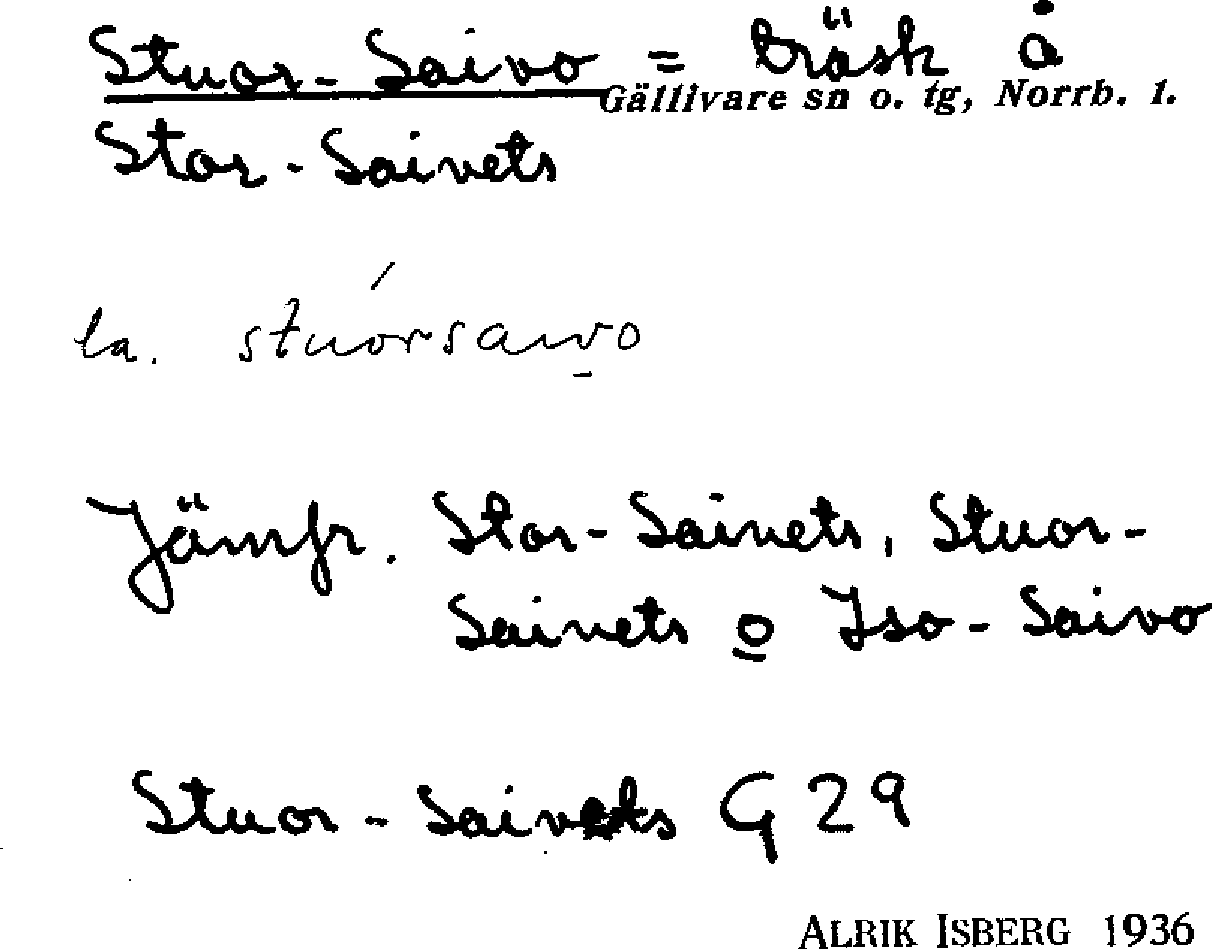 Stuor-Saivo = träsk å
Gällivare sn o. tg, Norrb. l.
Stor-Saivets
la. stuórsaivo
Jämfr. Stor-Saivets, Stuor-
Saivets o Iso-Saivo
Stuor-Saivets G 29
ALRIK ISBERG 1936